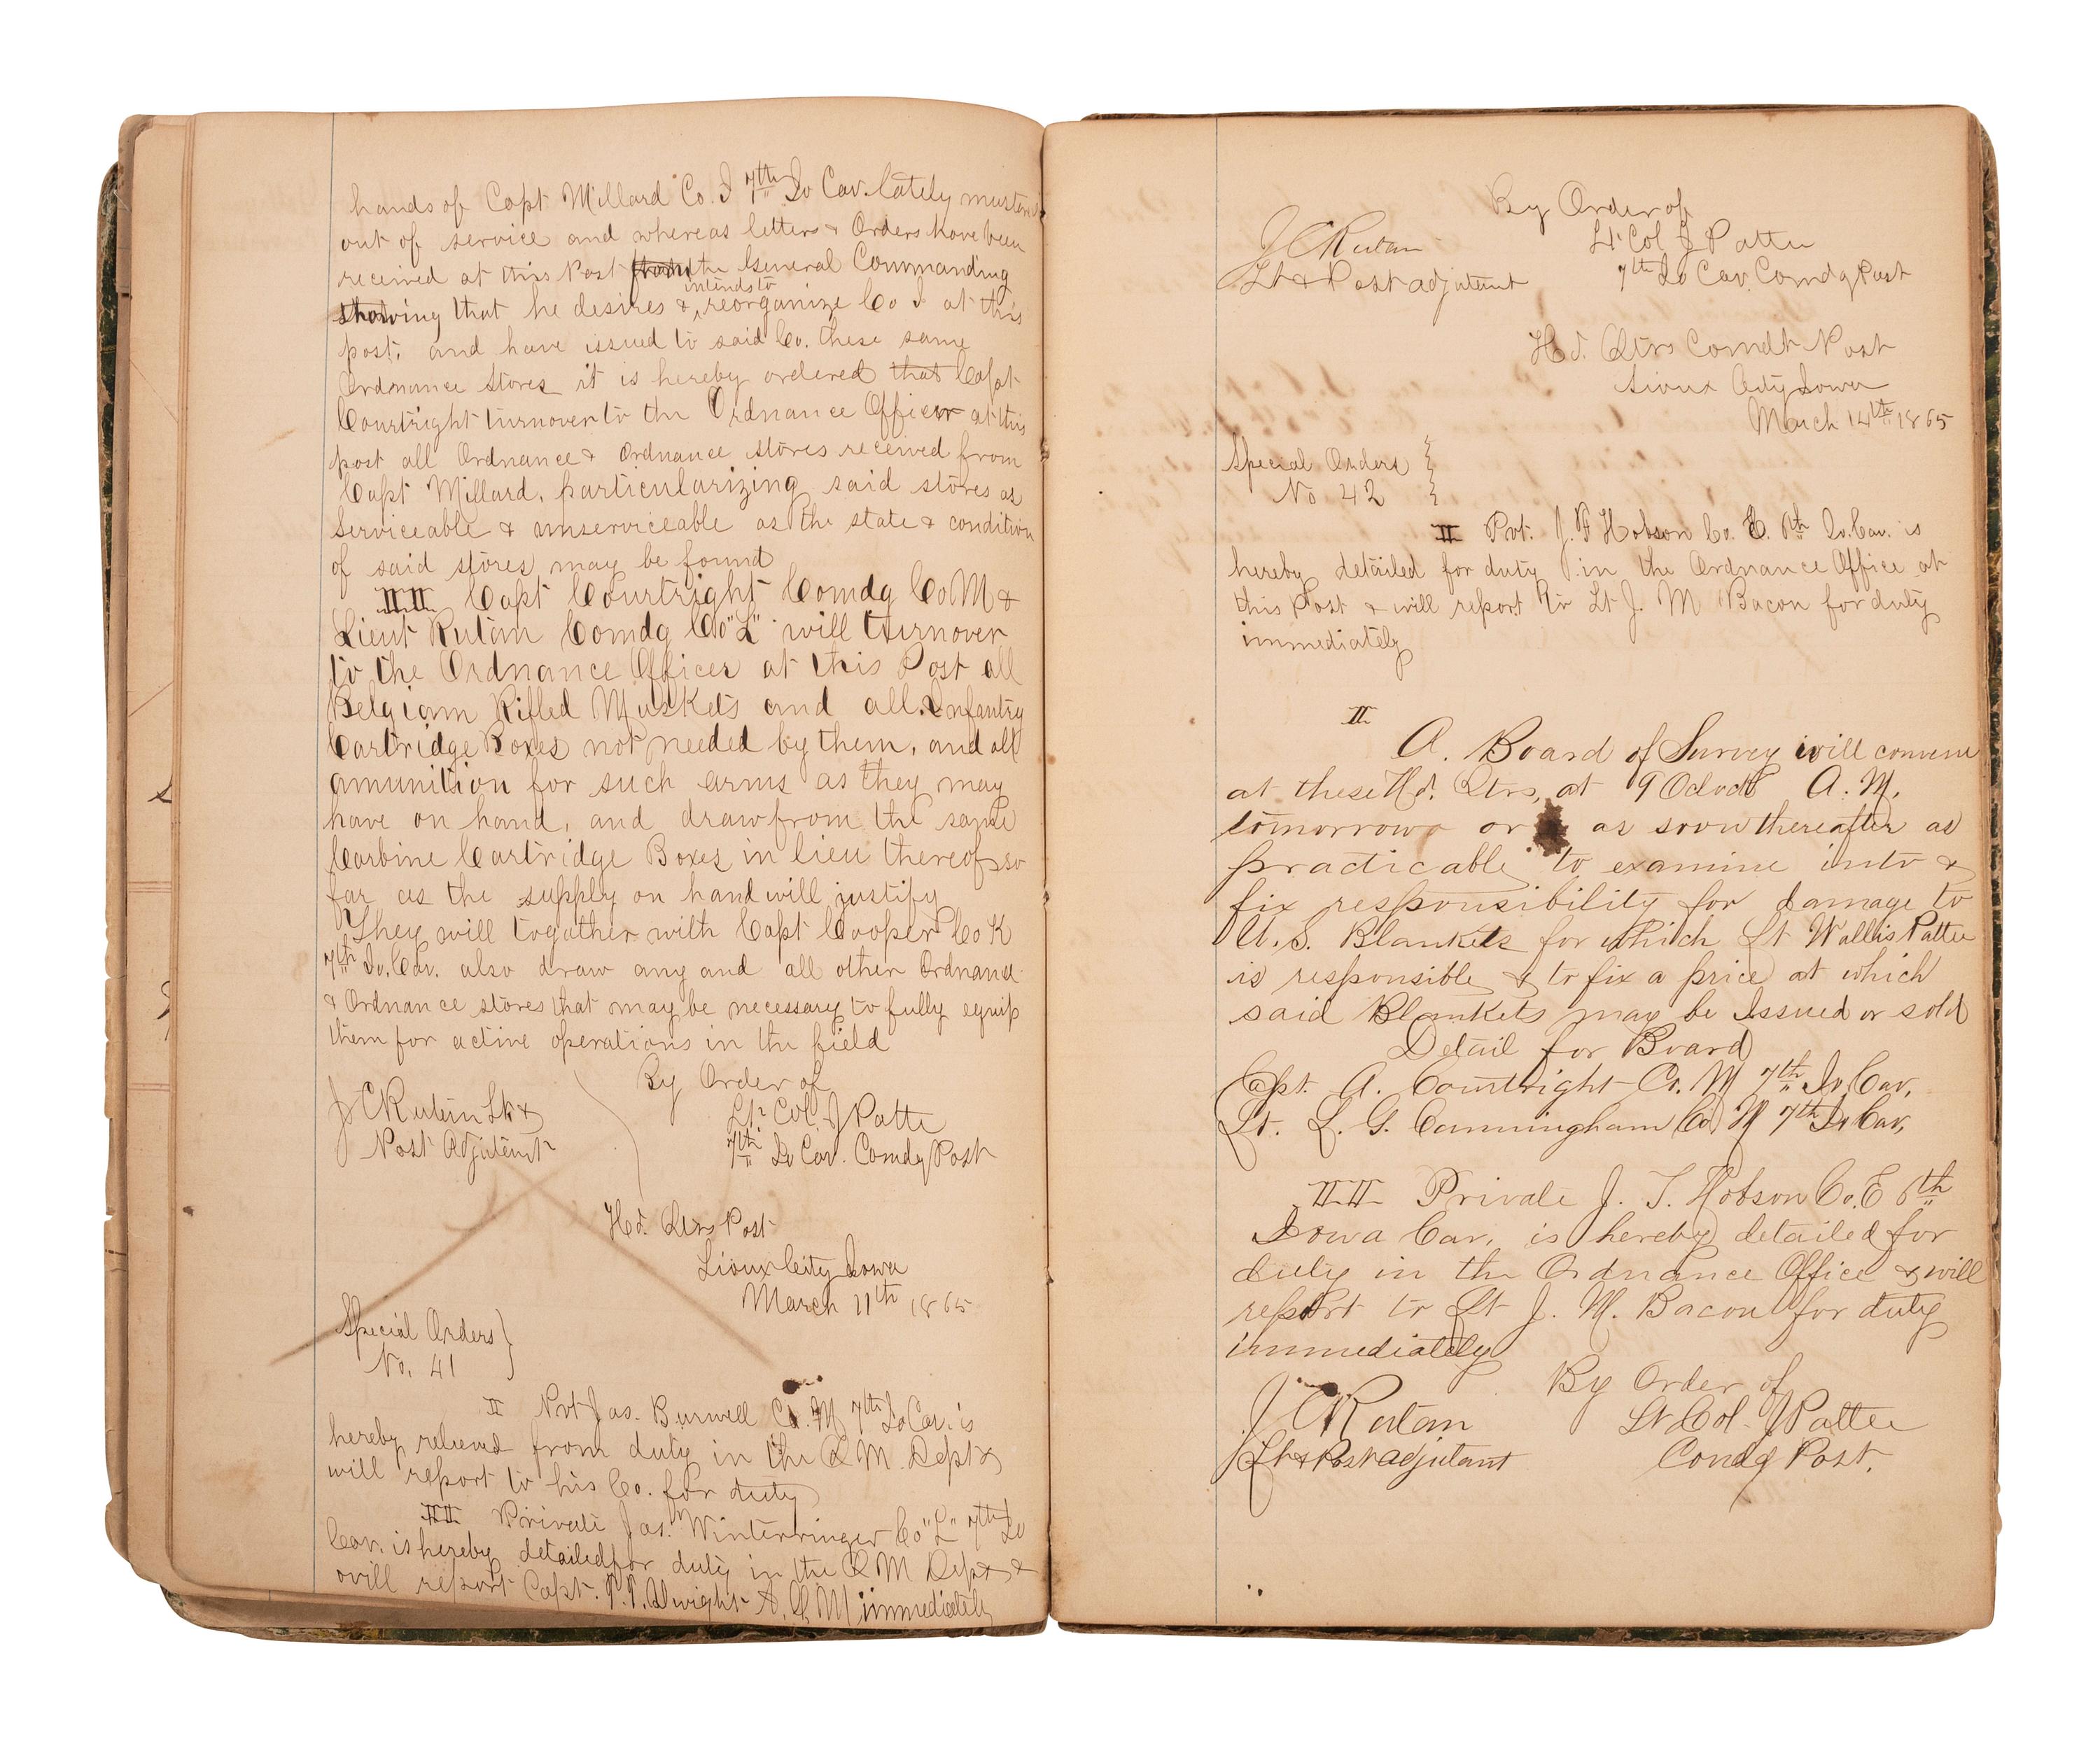 hands of Capt Millard Co. I 7th Io Cav. lately musterd
out of service and whereas letters & Orders have been
received at this Post from the General Commanding
intends to
showing that he desires & reorganize Co I at this
post, and have issued to said Co. these same
Ordnance Stores it is hereby ordered that Capt
Courtright turnover to the Ordnance Officer at this
post all Ordnance & Ordnance stores received from
Capt Millard, particularizing said stores as
Serviceable & unserviceable as the state & condition
of said stores may be found
II Capt Courtright Comdg Co M &
Lieut Rutan Comdg Co "L" will turnover
to the Ordnance Officer at this Post all
Belgian Rifled Muskets and all Infantry
Cartridge Boxes not needed by them, and all
amunition for such arms as they may
have on hand, and draw from the same
Carbine Cartridge Boxes in lieu thereof so
far as the supply on hand will justify
They will togather with Capt Cooper Co K
7th Io. Cav. also draw any and all other Ordnance
& Ordnance stores that may be necessary to fully equip
them for active operations in the field
By Order of
J C Rutan Lt & Lt. Col. J Patte
Post Adjutant 7th Io Cav. Comdg Post
Hd. Qtrs Post
Sioux City Iowa
March 11th 1865
Special Orders }
No. 41
I Pvt Jas. Burwell Co. M 7th Io Cav. is
hereby relieved from duty in the Q M. Dept &
will report to his Co. for duty
II Private Jas. Winterringer Co "L" 7th Io
Cav. is hereby detailed for duty in the Q M Dept &
will report Capt. Dwight A. Q M immediately
By Order of
J C Rutan Lt Col J Pattee
Lt & Post adjutant 7th Io Cav. Comdg Post
Hd. Qtrs Comdt Post
Sioux City Iowa
March 14th 1865
Special Orders }
No 42
I Pvt. J. T Hobson Co. E. 6th Io. Cav. is
hereby detailed for duty in the Ordnance Office at
this Post & will report to Lt J. M Bacon for duty
immediately
II
A. Board of Survey will convene
at these Hd. Qtrs, at 9 Oclock A. M.
tomorrow or as soon thereafter as
practicable to examine into &
fix responsibility for damage to
U. S. Blankets for which Lt Wallis Pattee
is responsible & to fix a price at which
said Blankets may be Issued or sold
Detail for Board
Capt. A. Courtright Co. M 7th Io Cav.
Lt. L. G. Cunningham Co M 7th Io Cav.
II Private J. T. Hobson Co. E 6th
Iowa Cav. is hereby detailed for
duty in the Ordnance Office & will
report to Lt J. M. Bacon for duty
immediately
By Order of
J C Rutan Lt Col. J Pattee
Lt & Post adjutant Comdg Post.